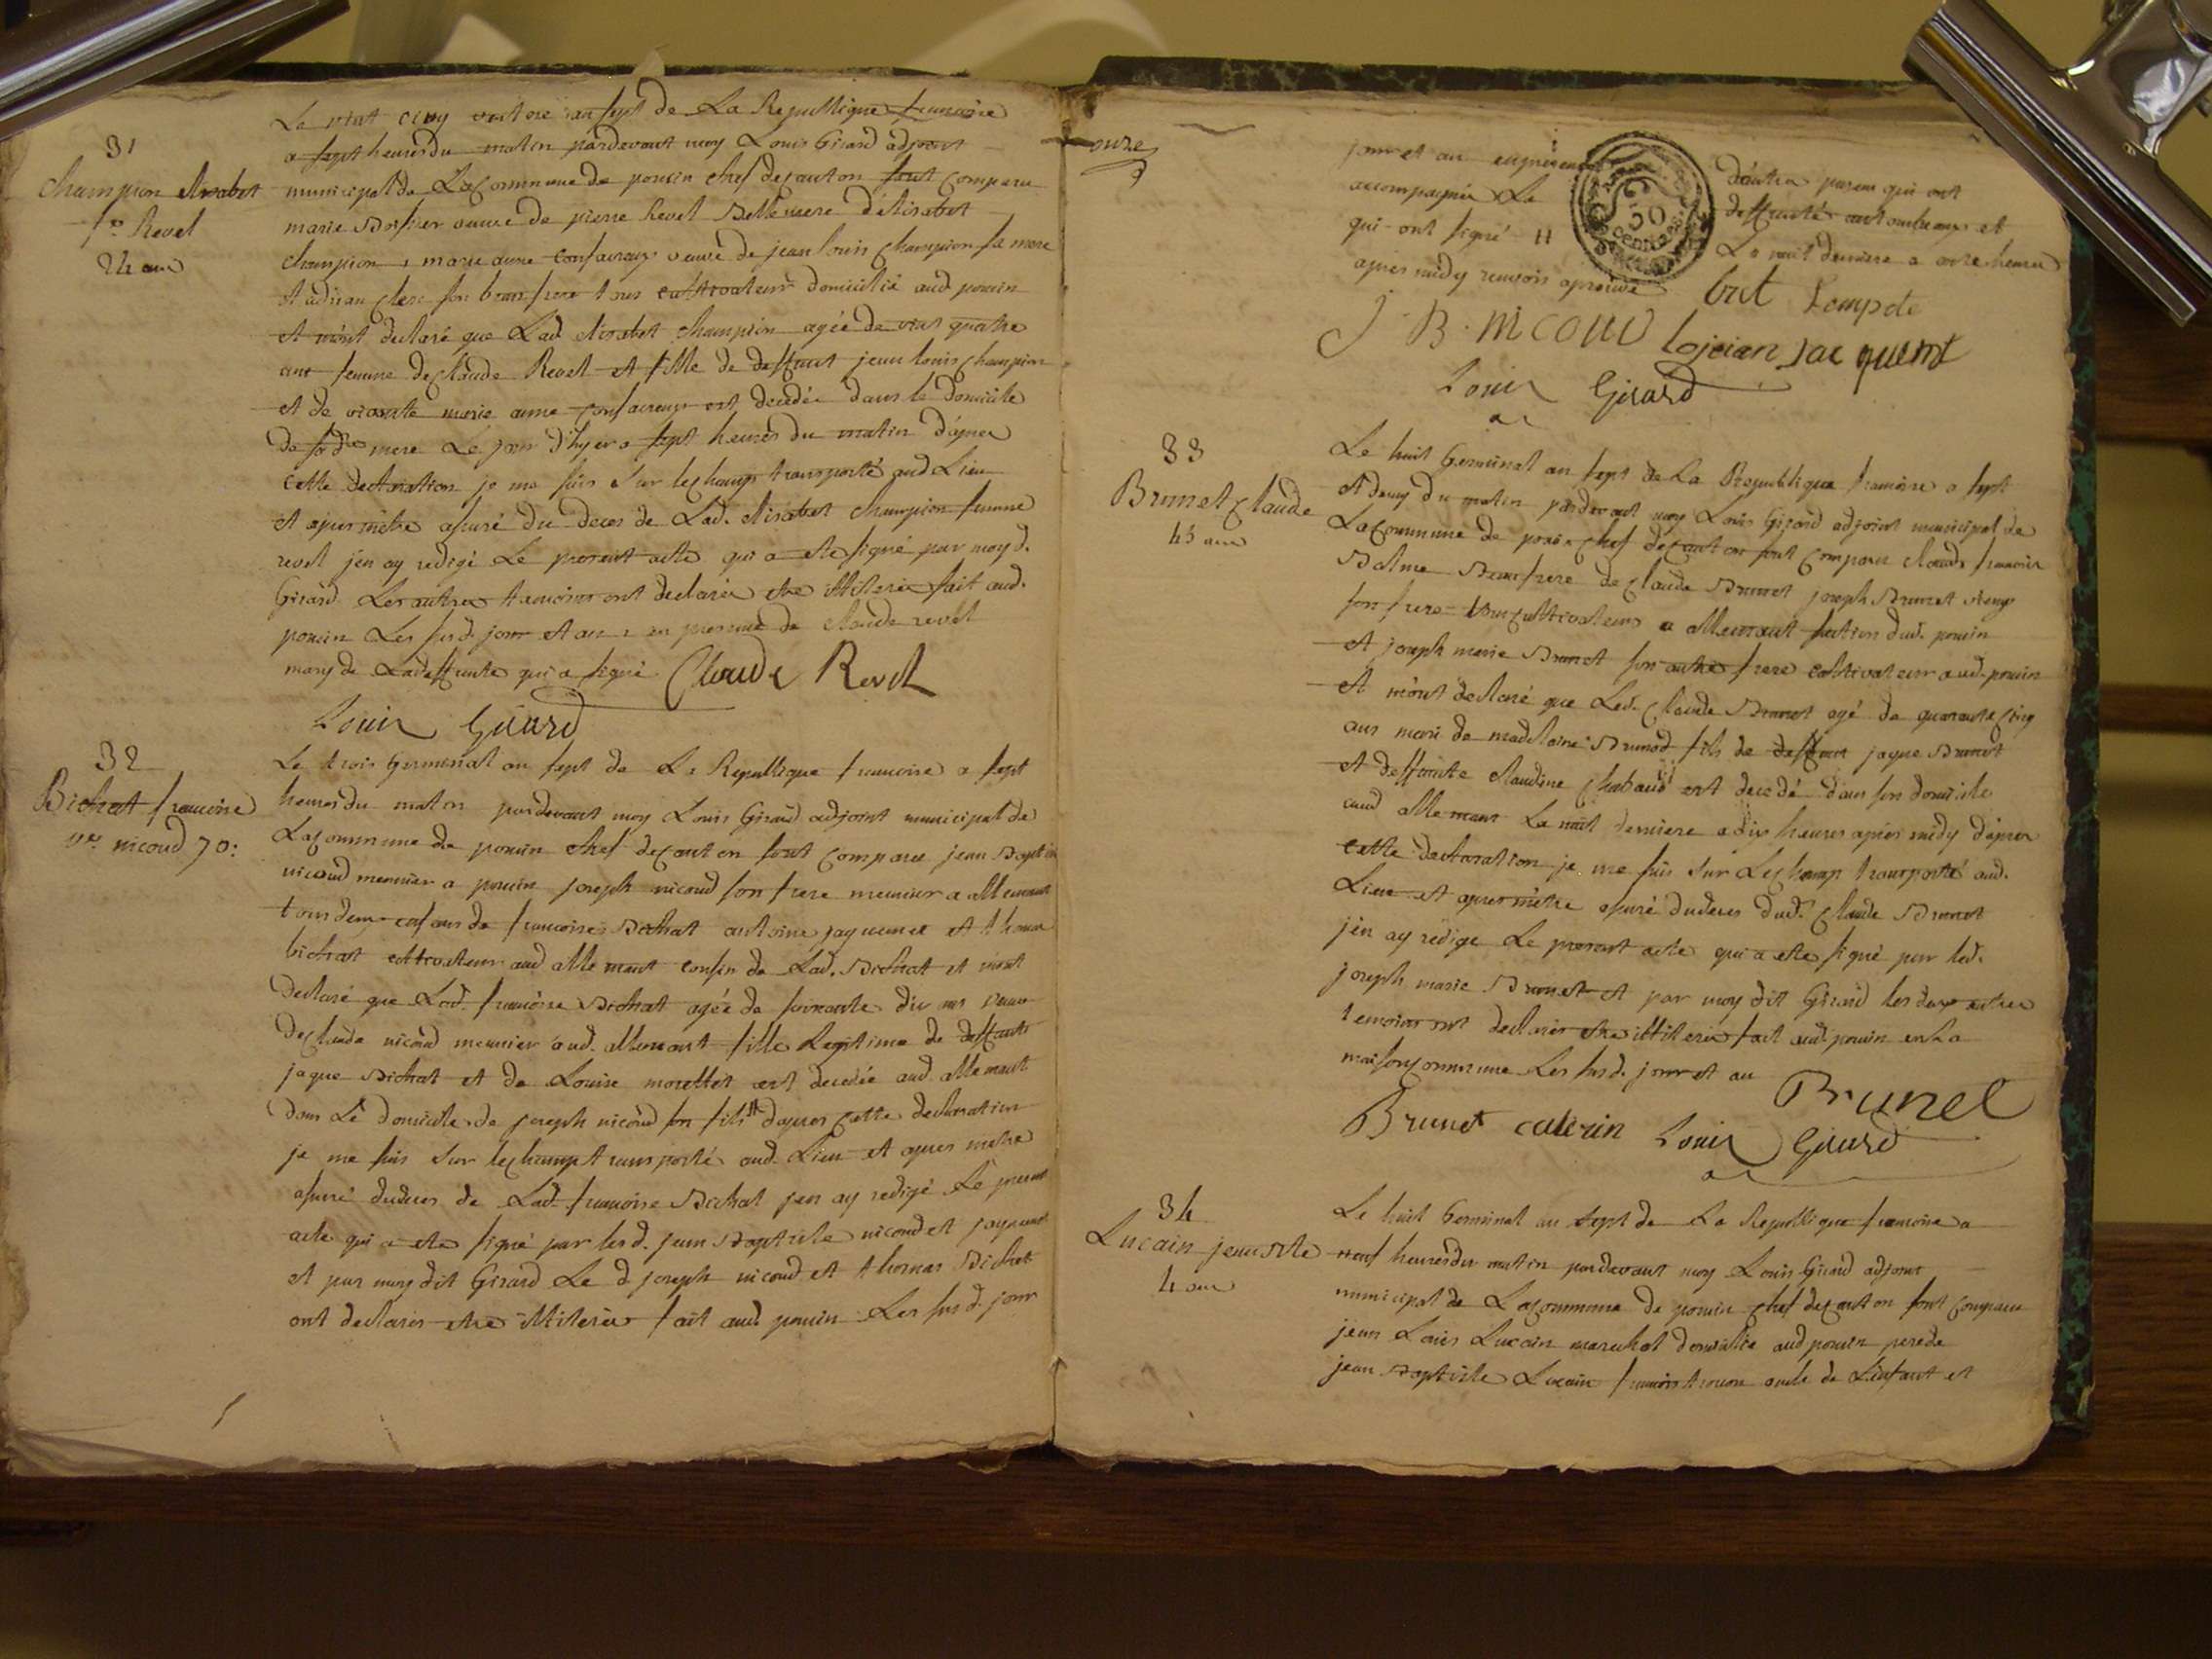 31
Champion Elisabet
fe Revel
24 ans
Le vint cinq ventose an sept de La Republique francoise
a sept heures du matin pardevant moy Louis Girard adjoint
municipal de La Commune de poncin chef de canton sont comparu
marie veuve de pierre Revel Belle mere d'Elisabet
Champion, marie anne veuve de jean louis Champion sa mere
et adrian Clerc son beau frere tous cultivateurs domicilié aud poncin
et m'ont declaré que Lad Elisabet Champion agée de vint quatre
ans femme de Claude Revel et fille de deffunt jean louis Champion
et de vivante marie anne est decedée dans le domicile
de sad. mere Le jour d'hyer a sept heures du matin d'apres
cette declaration je me suis sur le champ transporté aud Lieu
et apres m'etre assuré du deces de Lad. Elisabet Champion femme
revel jen ay redigé Le present acte qui a ete signé par moy d.
Girard Les autres temoins ont declarés etre illiterés fait aud.
poncin Les susd. jour et an, en presence de Claude revel
mary de Ladeffunte qui a signé Claude Revel
Louis Girard
32
Bichat francoise
ve nicoud 70:
Le trois Germinal an sept de La Republique francoise a sept
heures du matin pardevant moy Louis Girard adjoint municipal de
La Commune de poncin chef de canton sont comparu jean Baptiste
nicoud meunier a poncin joseph nicoud son frere meunier a allement
tous deux enfans de francoise Bichat antoine jaquemet et thomas
bichat cultivateurs aud allemant cousin de Lad. Bichat et m'ont
declaré que Lad. francoise Bichat agée de soixante dix ans veuve
de Claude nicoud meunier aud. allemant fille Legitime de deffunts
jaque Bichat et de Louise morettet est decedée aud allemant
dans Le domicile de joseph nicoud son fils # d'apres cette declaration
je me suis sur le champ transporté aud. Lieu et apres m'etre
assuré du deces de Lad. francoise Bichat jen ay redigé Le present
acte qui a ete signé par lesd. jean Baptiste nicoud et jaquemet
et par moy dit Girard Le d joseph nicoud et thomas Bichat
ont declarés etre illiterés fait aud. poncin Les susd. jour
onze
jour et an en presence d'autres parens qui ont
accompagnés La deffunte au tombeau et
qui ont signé # La nuit derniere a onze heures
apres midy renvois aprouvé
50 centimes
J. B. nicoud jacquemet
Louis Girard
33
Brunet Claude
45 ans
Le huit Germinal an sept de La Republique francoise a sept
et demy du matin pardevant moy Louis Girard adjoint municipal de
La Commune de poncin chef de canton sont comparu Claude francois
Balme Beaufrere de Claude Brunet joseph Brunet
son frere tous cultivateurs a allemant section dud. poncin
et joseph marie Brunet son autre frere cultivateur aud. poncin
et m'ont declaré que Led. Claude Brunet agé de quarante cinq
ans mari de madelaine Brunod fils de deffunt jaque Brunet
et deffunte Claudine Chabaud est decedé dans son domicile
aud allemant La nuit derniere a dix heures apres midy d'apres
cette declaration je me suis sur Le champ transporté aud.
Lieu et apres m'etre assuré du deces dud. Claude Brunet
j'en ay redigé Le present acte qui a ete signé par led.
joseph marie Brunet et par moy dit Girard les deux autres
temoins ont declarés etre illiterés fait aud. poncin en La
maison commune Les susd. jour et an
Brunet
Brunet caterin Louis Girard
34
Lucain jean Bte
4 ans
Le huit Germinal an sept de La Republique francoise a
neuf heures du matin pardevant moy Louis Girard adjoint
municipal de La Commune de poncin chef de canton sont comparu
jean Louis Lucain marechal domicilié aud poncin pere de
jean Baptiste Lucain francois oncle de L'enfant et